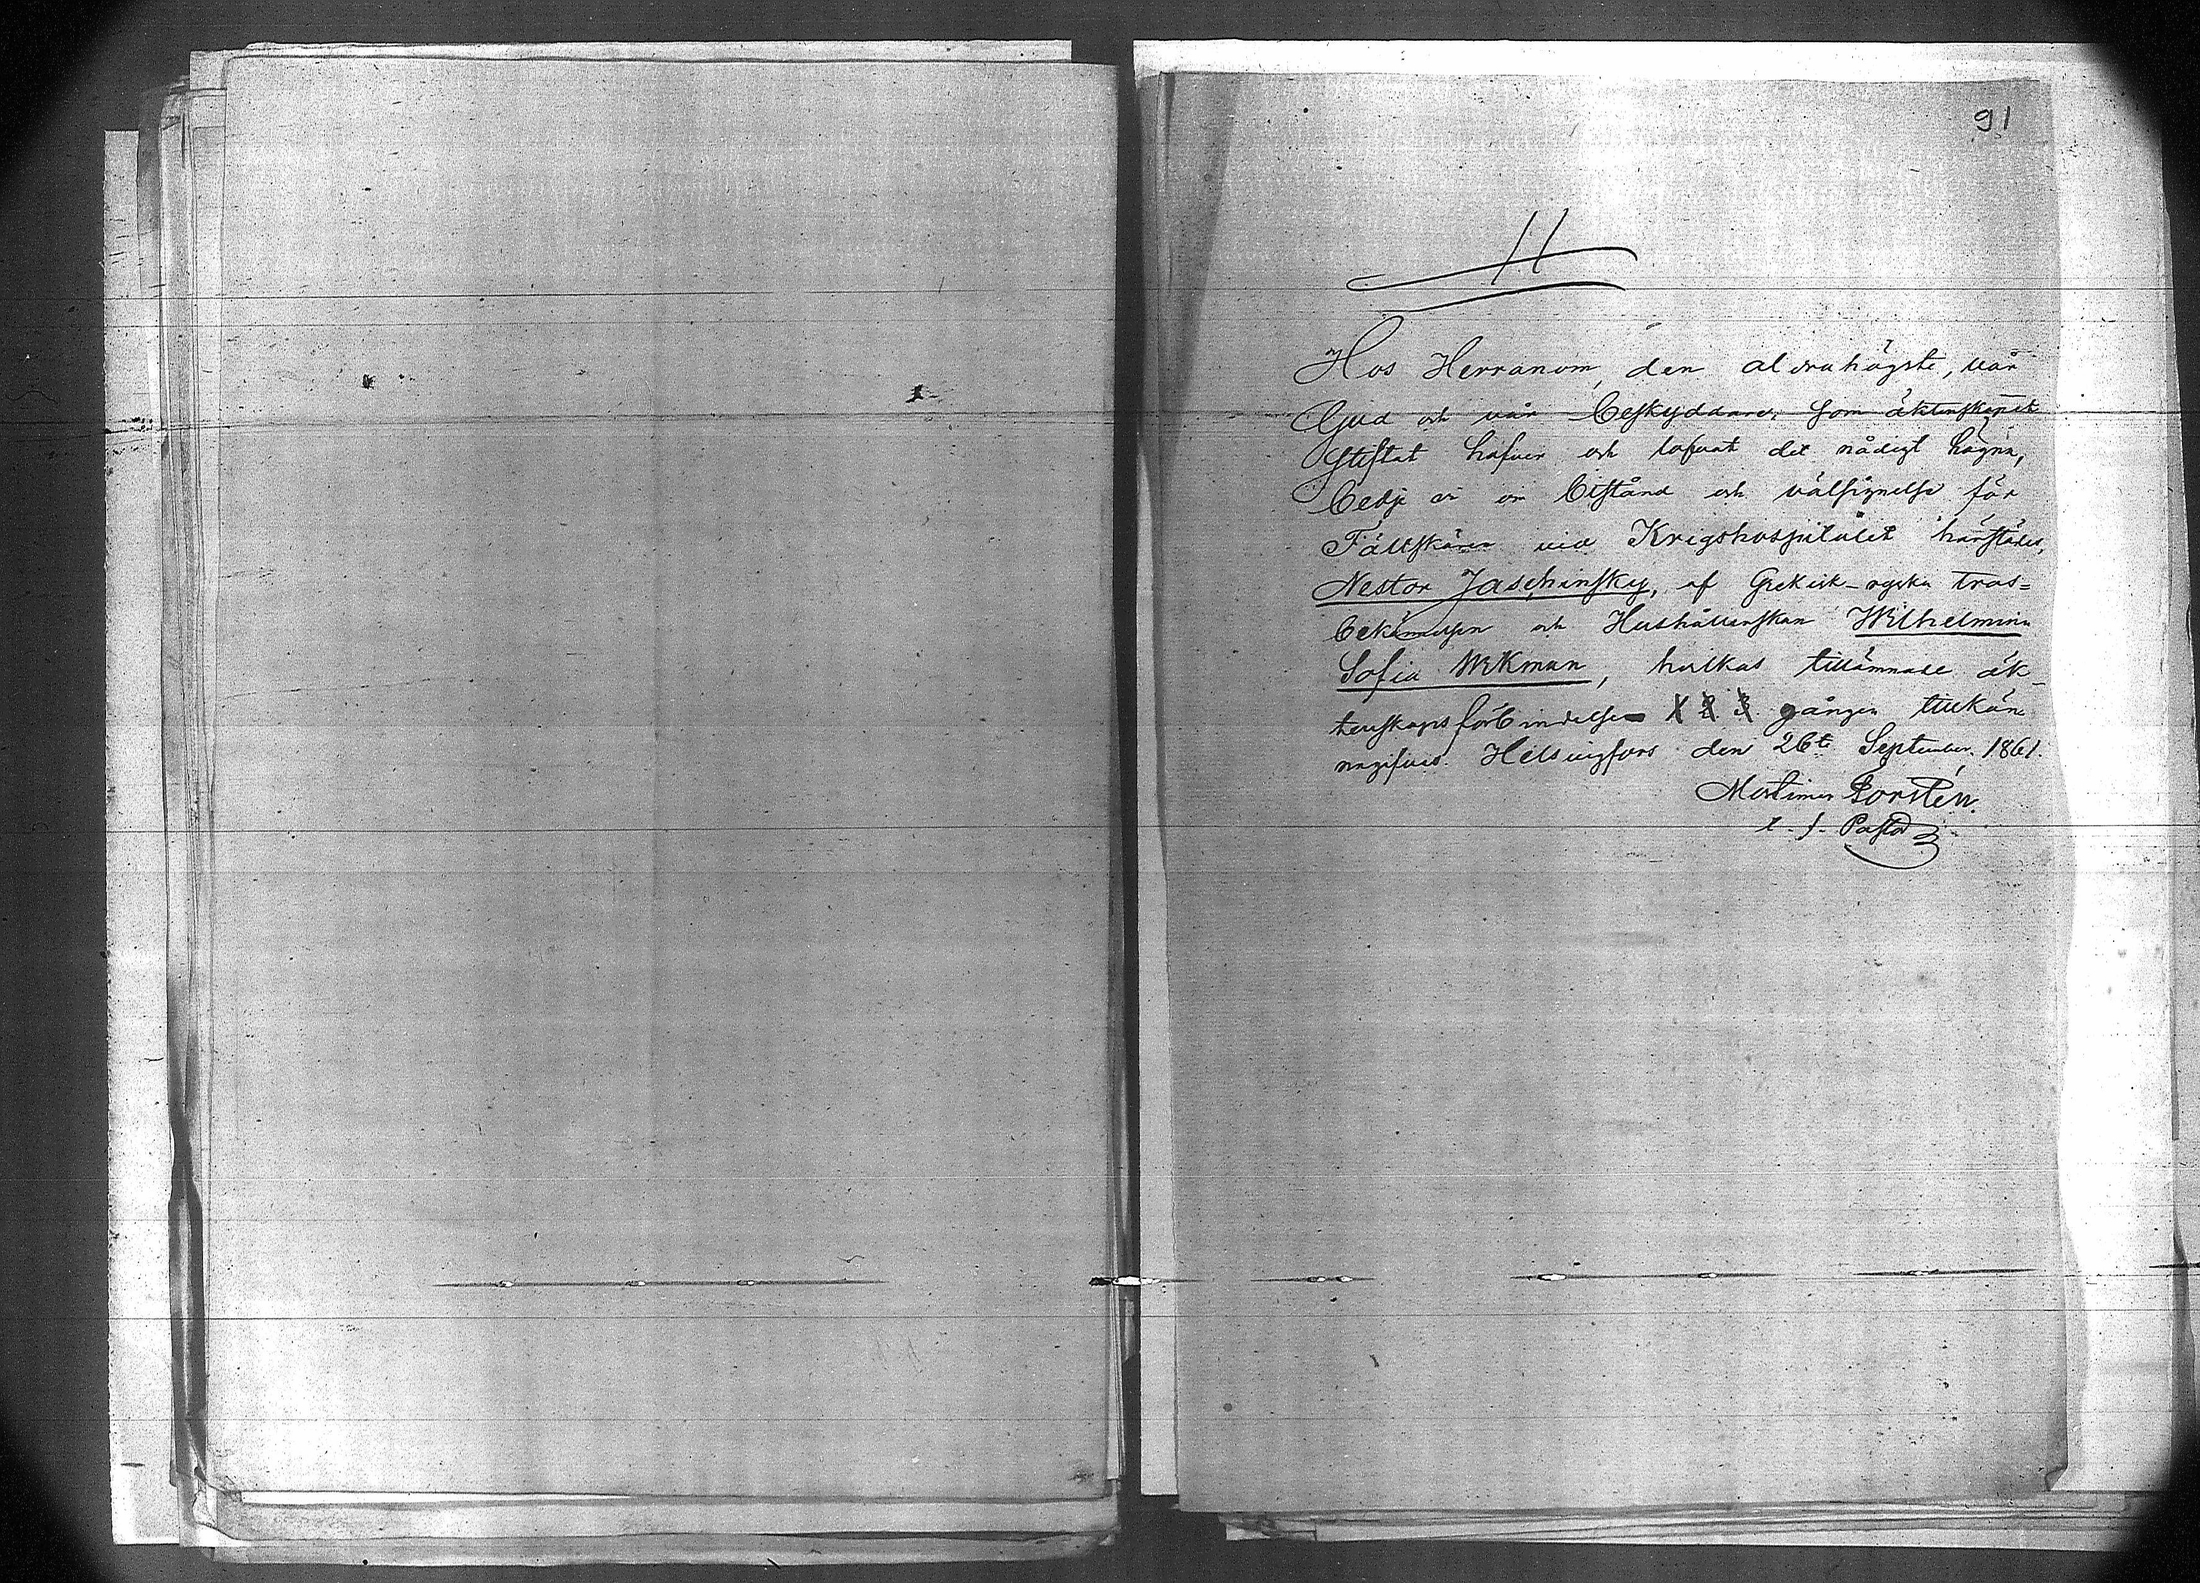 91
11
Hos Herranom, den aldrahögste, vår
Gud och vår Beskyddare, som äktenskapet
Stiftat hafver och lofvat det nådigt hägna,
bedje vi om bistånd och välsignelse för
Fältskären vid Krigshospitalet härstädes,
Nestor Jaschinsky, af Grekisk-ryska tros=
bekännelsen och Hushållerskan Wilhelmina
Sofia Wikman, hvilkas tillämnade äk-
tenskapsförbindelse 1 2 3 gången tillkän
nagifves. Helsingfors den 26te September 1861
Mortimer
t. f. Pastor